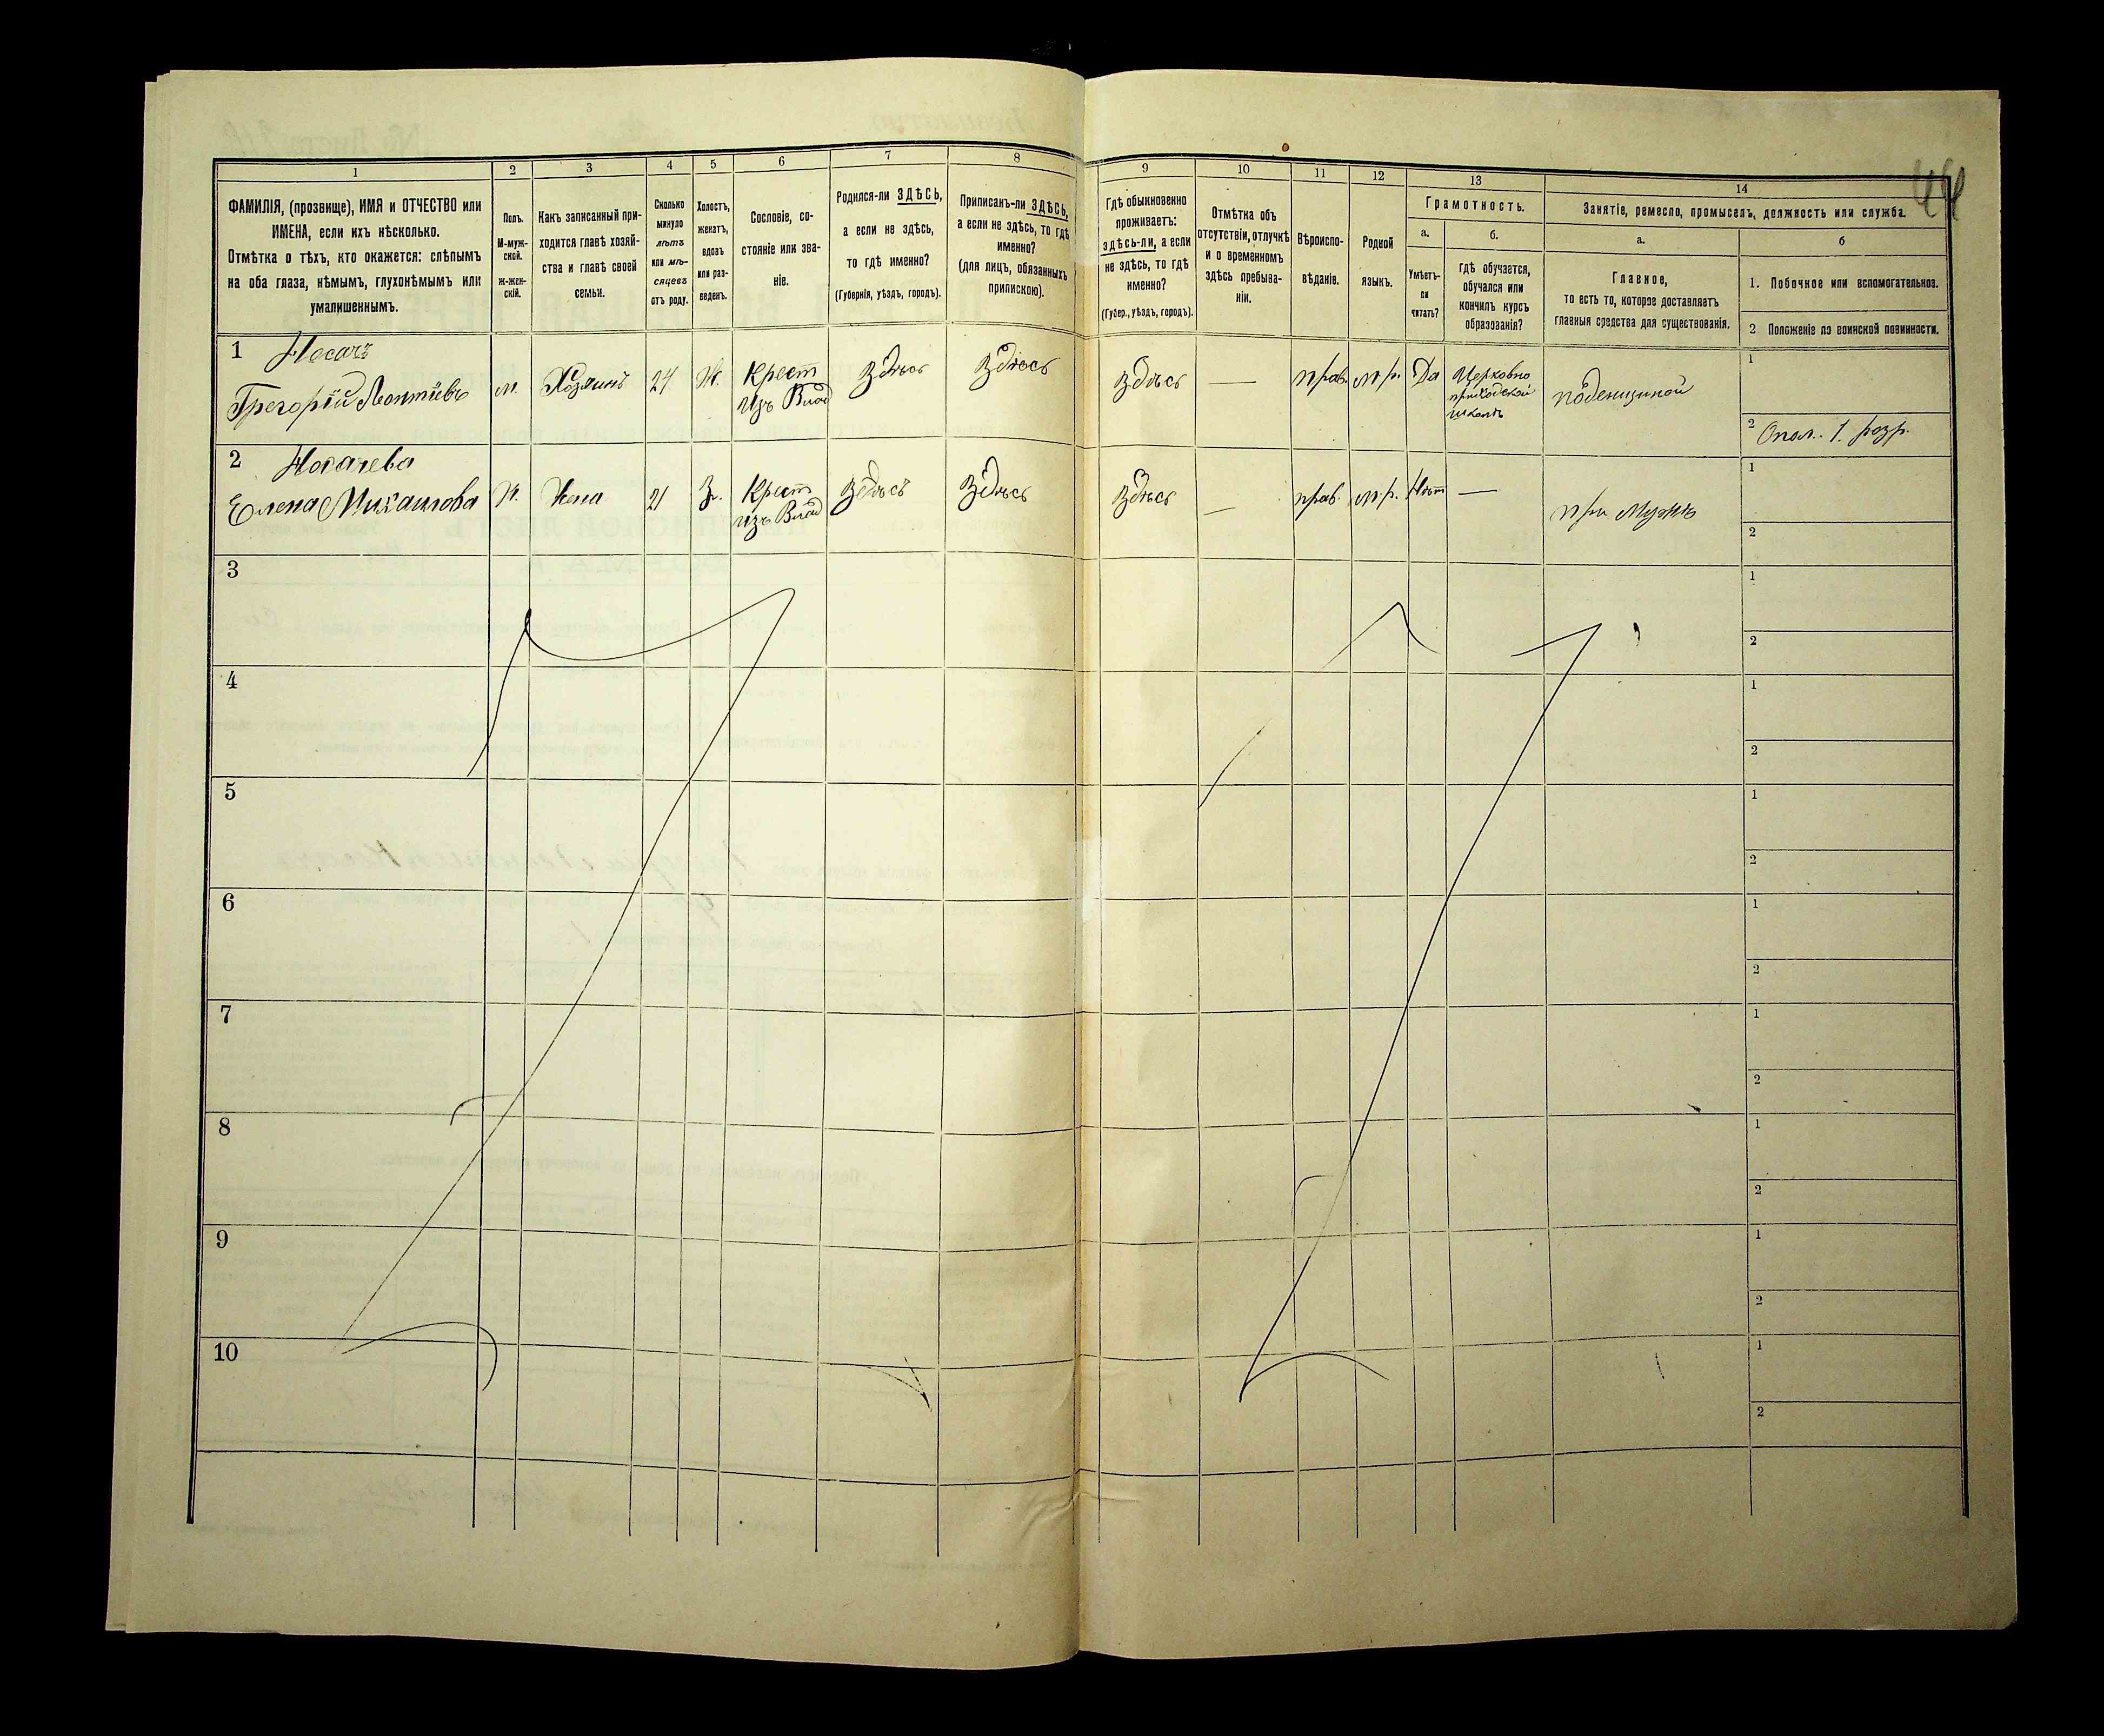 44
1
2
3
4
5
6
7
8
9
10
11
12
13
14
ФАМИЛІЯ, (прозвище), ИМЯ и ОТЧЕСТВО или
ИМЕНА, если ихъ нѣсколько.
Отмѣтка о тѣхъ, кто окажется: слѣпымъ
на оба глаза, нѣмымъ, глухонѣмымъ или
умалишеннымъ.
Полъ.
М-муж-
ской.
ж-жен-
скій.
Какъ записанный при-
ходится главѣ хозяй-
ства и главѣ своей
семьи.
Сколько
минуло
лѣтъ
или мѣ-
сяцевъ
отъ роду.
Холостъ,
женатъ,
вдовъ
или раз-
веденъ.
Сословіе, со-
стояніе или зва-
ніе.
Родился-ли ЗДѢСЬ,
а если не здѣсь,
то гдѣ именно?
(Губернія, уѣздъ, городъ).
Приписанъ-ли ЗДѢСЬ,
а если не здѣсь, то гдѣ
именно?
(для лицъ, обязанныхъ
припискою).
Гдѣ обыкновенно
проживаетъ:
здѣсь-ли, а если
не здѣсь, то гдѣ
именно?
(Губер., уѣздъ, городъ).
Отмѣтка объ
отсутствіи, отлучкѣ
и о временномъ
здѣсь пребыва-
ніи.
Вѣроиспо-
вѣданіе.
Родной
языкъ.
Грамотность.
а.
Умѣетъ-
ли
читать?
б.
гдѣ обучается,
обучался или
кончилъ курсъ
образованія?
Занятіе, ремесло, промыселъ, должность или служба.
а.
Главное,
то есть то, которое доставляетъ
главныя средства для существованія.
б
1. Побочное или вспомогательное.
2 Положеніе по воинской повинности.
1 Носачъ
Григорій Леонтіевъ
м.
Хозяинъ
24
Ж.
Крест
изъ Влад
Здѣсь
Здѣсь
Здѣсь
—
прав.
м.р.
Да
Церковно
приходской
школѣ
поденщиной
1
2 Опол. 1. разр.
2 Носачева
Елена Михаилова
Ж.
Жена
21
З.
Крест
изъ Влад
Здѣсь
Здѣсь
Здѣсь
—
прав.
м.р.
Нѣт
—
при мужѣ
1
2
3
1
2
4
1
2
5
1
2
6
1
2
7
1
2
8
1
2
9
1
2
10
1
2